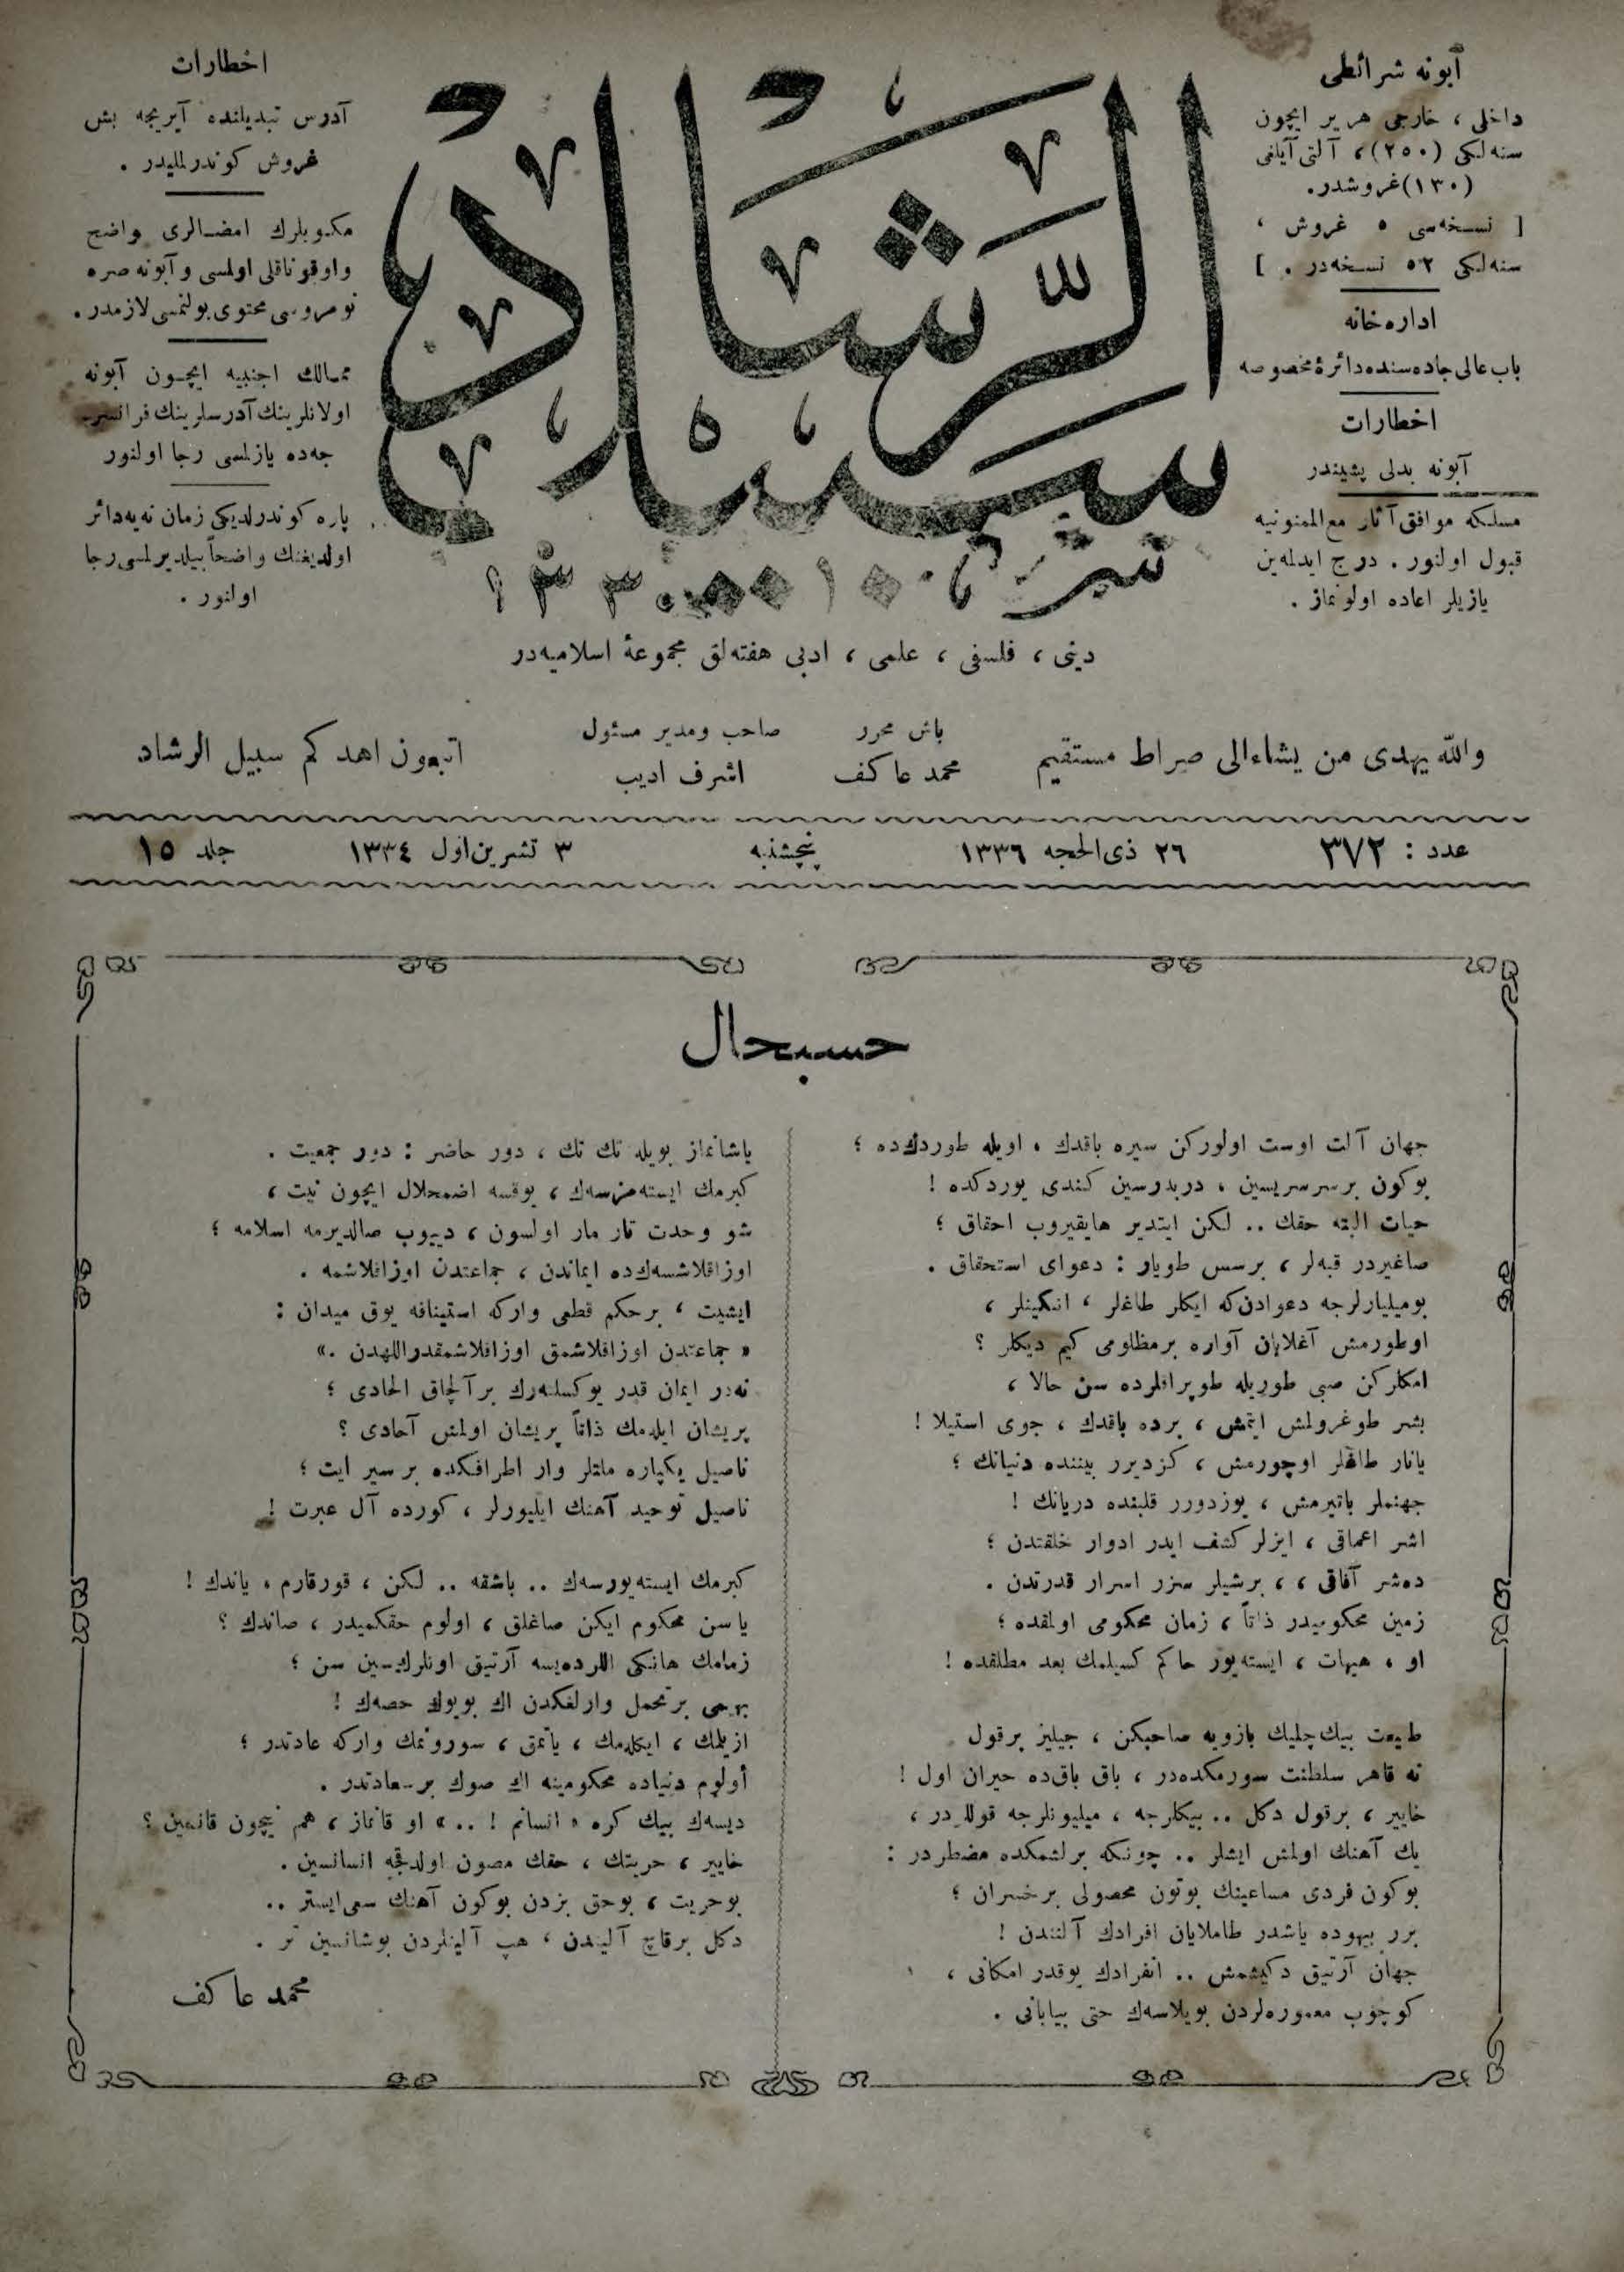 آبونه شرائطی
داخلی ، خارجی هر یر ایچون
سنه‌لكی (٢٥٠) ، آلتی آیلغی
(١٣٠) غروشدر.
[ نسخه‌سی ٥ غروش ،
سنه‌لكی ٥٢ نسخه‌در . ]
اداره خانه
باب عالی جاده‌سنده دائرۀ مخصوصه
اخطارات
آبونه بدلی پشیندر
مسلكه موافق آثار مع الممنونیه
قبول اولنور . درج ایدلمه‌ین
یازیلر اعاده اولونماز .
سبیل الرشاد
دینی ، فلسفی ، علمی ، ادبی هفته‌لق مجموعۀ اسلامیه‌در
اخطارات
آدرس تبدیلنده آیریجه بش
غروش كوندرلملیدر .
مكتوبلرك امضالری واضح
واوقوناقلی اولمسی و آبونه صره
نومروسی محتوی بولنمسی لازمدر .
ممالك اجنبیه ایچون آبونه
اولانلرینك آدرسلرینك فرانسز
جه‌ده یازلمسی رجا اولنور
پاره كوندرلدیكی زمان نه‌یه دائر
اولدیغنك واضحاً بیلدیرلمسی رجا
اولنور .
والله یهدی من یشاء الی صراط مستقیم
باش محرر
محمد عاكف
صاحب ومدیر مسئول
اشرف ادیب
اتبعون اهدكم سبیل الرشاد
عدد : ٣٧٢
٢٦ ذی الحجه ١٣٣٦
پنجشنبه
٣ تشرین اول ١٣٣٤
جلد ١٥
حسبحال
جهان آلت اوست اولوركن سیره باقدك ، اویله طوردك‌ده ؛
بوكون برسرسریسین ، دربدرسین كندی یوردكده !
حیات البته حقك .. لكن ایتدیر هایقیروب احقاق ؛
صاغیردر قبه‌لر ، برسس طویار : دعوای استحقاق .
بو میلیارلرجه دعوادن‌كه ایكلر طاغلر ، انكینلر ،
اوطورمش آغلایان آواره برمظلومی كیم دیكلر ؟
امكلركن صبی طوریله طوپراقلرده سن حالا ،
بشر طوغرولمش ایتمش ، برده باقدك ، جوی استیلا !
یانار طاغلر اوچورمش ، كزدیرر بیننده دنیانك ؛
جهنملر باتیرمش ، یوزدورر قلبنده دریانك !
اشر اعماقی ، ایزلر كشف ایدر ادوار خلقتدن ؛
ده‌شر آفاقی ، ، برشیلر سزر اسرار قدرتدن .
زمین محكومیدر ذاتاً ، زمان محكومی اولقده ؛
او ، هیهات ، ایسته‌یور حاكم كسیلمك بعد مطلقده !
طبیعت بیك چلیك بازویه صاحبكن ، جیلیز برقول
نه قاهر سلطنت سورمكده‌در ، باق باق‌ده حیران اول !
خایر ، برقول دكل .. بیكلرجه ، میلیونلرجه قوللردر ،
یك آهنك اولمش ایشلر .. چونكه برلشمكده مضطردر :
بوكون فردی مساعینك بوتون محصولی برخسران ؛
برر بیهوده یاشدر طاملایان افرادك آلنندن !
جهان آرتیق دكیشمش .. انفرادك یوقدر امكانی ،
كوچوب معموره‌لردن بویلاسه‌ك حتی بیابانی .
یاشانماز بویله تك تك ، دور حاضر : دور جمعیت .
كبرمك ایسته‌مزسه‌ك ، یوقسه اضمحلال ایچون نیت ،
شو وحدت تار مار اولسون ، دییوب صالدیرمه اسلامه ؛
اوزاقلاشسه‌ك‌ده ایماندن ، جماعتدن اوزاقلاشمه .
ایشیت ، برحكم قطعی واركه استینافه یوق میدان :
« جماعتدن اوزاقلاشمق اوزاقلاشمقدر اللهدن .»
نه‌در ایمان قدر یوكسلنه‌رك برآلچاق الحادی ؛
پریشان ایله‌مك ذاتاً پریشان اولمش آحادی ؟
ناصیل یكپاره ملتلر وار اطرافكده بر سیر ایت ؛
ناصیل توحید آهنك ایلیورلر ، كورده آل عبرت !
كبرمك ایسته‌یورسه‌ك .. باشقه .. لكن ، قورقارم ، یاندك !
یا سن محكوم ایكن صاغلق ، اولوم حقكمیدر ، صاندك ؟
زمامك هانكی اللرده‌یسه آرتیق اونلركسین سن ؛
بهیمی برتحمل وارلغكدن اك بویوك حصه‌ك !
ازیلمك ، ایكله‌مك ، یاتمق ، سورونمك واركه عادتدر ؛
أولوم دنیاده محكومینه اك صوك بر سعادتدر .
دیسه‌ك بیك كره « انسانم ! .. » او قانماز ، هم نیچون قانسین ؟
خایر ، حریتك ، حقك مصون اولدقجه انسانسین .
بوحریت ، بوحق بزدن بوكون آهنك سعی ایستر ..
دكل برقاچ آلیندن ، هپ آلینلردن بوشانسین تر .
محمد عاكف